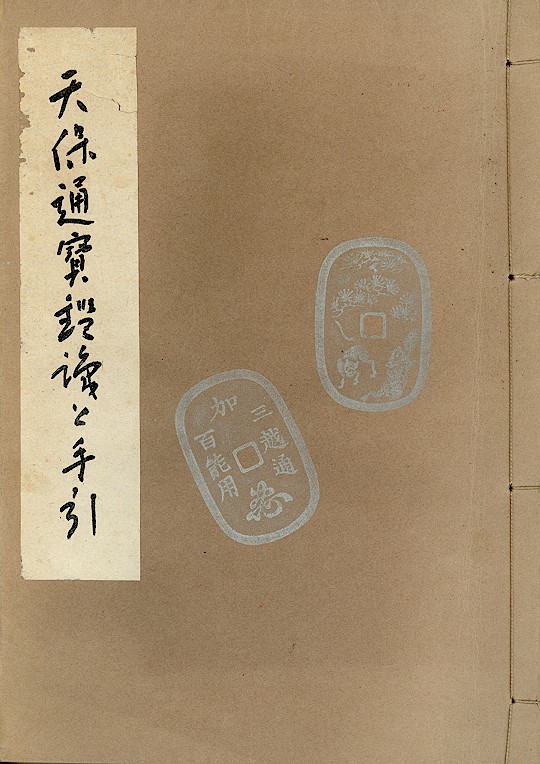 天保通寶鑑識と手引
加
三越通
百能用